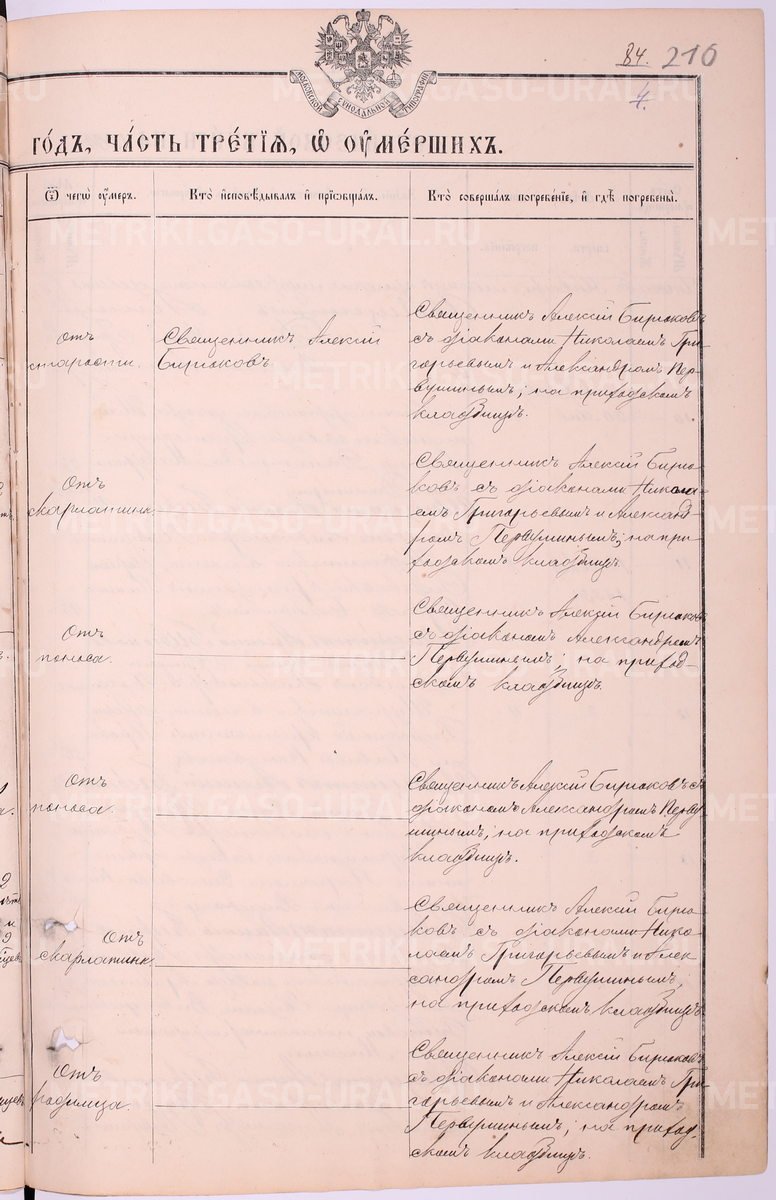 84. 216
4.
МОСКОВСКОЙ СѴНОДАЛЬНОЙ ТИПОГРАФІИ
ГО́ДЪ, ЧА́СТЬ ТРЕ́ТІЯ, Ѡ҆ ОУ҆МЕ́РШИХЪ.
Ѿ чегѡ̀ оу҆́меръ.
Кто̀ и҆сповѣ́дывалъ и҆ прїѡбща́лъ.
Кто̀ соверша́лъ погребе́нїе, и҆ гдѣ̀ погребены̀.
отъ
старости.
Священникъ Алексій
Бирюковъ
Священникъ Алексій Бирюковъ
съ діаконами Николаемъ Гри
горьевымъ и Александромъ Пер
вушинымъ; на приходскомъ
кладбищѣ.
отъ
скарлатины
Священникъ Алексій Бирю
ковъ съ діаконами Никола
емъ Григорьевымъ и Александ
ромъ Первушинымъ; на при
ходскомъ кладбищѣ.
отъ
поноса.
Священникъ Алексій Бирюковъ
съ діакономъ Александромъ
Первушинымъ; на приход-
скомъ кладбищѣ.
отъ
поноса.
Священникъ Алексій Бирюковъ съ
діакономъ Александромъ Перву
шинымъ; на приходскомъ
кладбищѣ.
отъ
скарлатины
Священникъ Алексій Бирю
ковъ съ діаконами Нико
лаемъ Григорьевымъ и Алек
сандромъ Первушинымъ;
на приходскомъ кладбищѣ
отъ
родимца.
Священникъ Алексій Бирюковъ
съ діаконами Николаемъ Гри
горьевымъ и Александромъ
Первушинымъ; на приход-
скомъ кладбищѣ.
METRIKI.GASO-URAL.RU